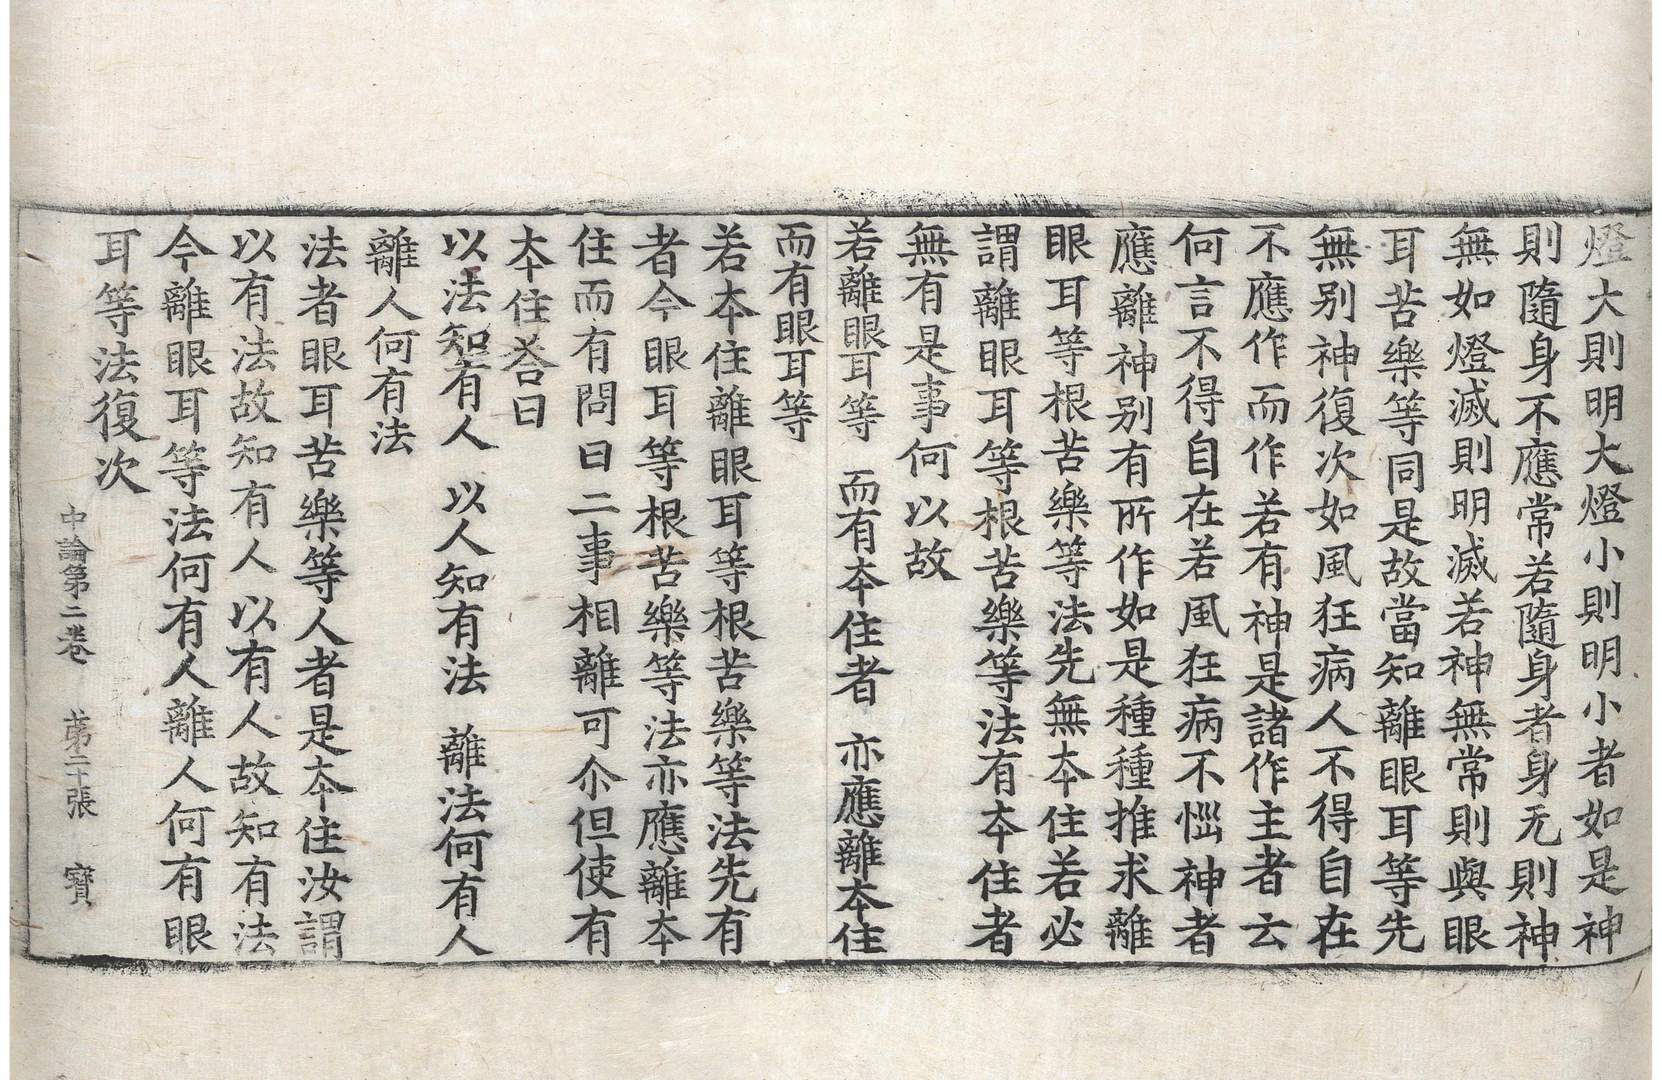 燈大則明大燈小則明小者如是神
則隨身不應常若隨身者身无則神
無如燈滅則明滅若神無常則與眼
耳苦樂等同是故當知離眼耳等先
無别神復次如風狂病人不得自在
不應作而作若有神是諸作主者云
何言不得自在若風狂病不惱神者
應離神别有所作如是種種推求離
眼耳等根苦樂等法先無夲住若必
謂離眼耳等根苦樂等法有夲住者
無有是事何以故
若離眼耳等 而有夲住者 亦應離夲住
而有眼耳等
若夲住離眼耳等根苦樂等法先有
者今眼耳等根苦樂等法亦應離夲
住而有問曰二事相離可尒但使有
夲住荅曰
以法知有人 以人知有法 離法何有人
離人何有法
法者眼耳苦樂等人者是夲住汝謂
以有法故知有人以有人故知有法
今離眼耳等法何有人離人何有眼
耳等法復次
中論第二卷 第二十張 寶